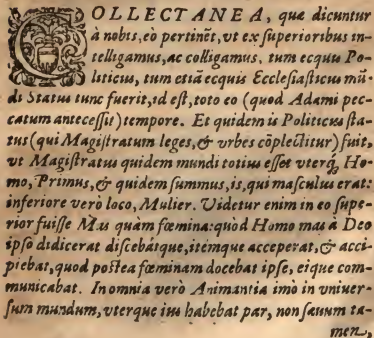 COLLECTANEA, quæ dicuntur
à nobis, eò pertinẽt, vt ex superioribus in-
telligamus, ac colligamus, tum ecquis Po-
liticus, tum etiã ecquis Ecclesiasticus mũ-
di Status tunc fuerit, id est, toto eo (quod Adami pec-
catum antecessit) tempore. Et quidem is Politicus sta-
tus (qui Magistratum leges, & vrbes cõplectitur) fuit,
vt Magistratus quidem mundi totius esset uterq; Ho-
mo, Primus, & quidem summus, is, qui masculus erat:
inferiore verò loco, Mulier. Videtur enim in eo supe-
rior fuisse Mas quàm fœmina: quòd Homo mas à Deo
ipso didicerat discebátque, itémque acceperat, & acci-
piebat, quod postea fœminam docebat ipse, eique com-
municabat. In omnia verò Animantia imò in vniuer-
sum mundum, vterque ius habebat par, non sæuum ta-
men,